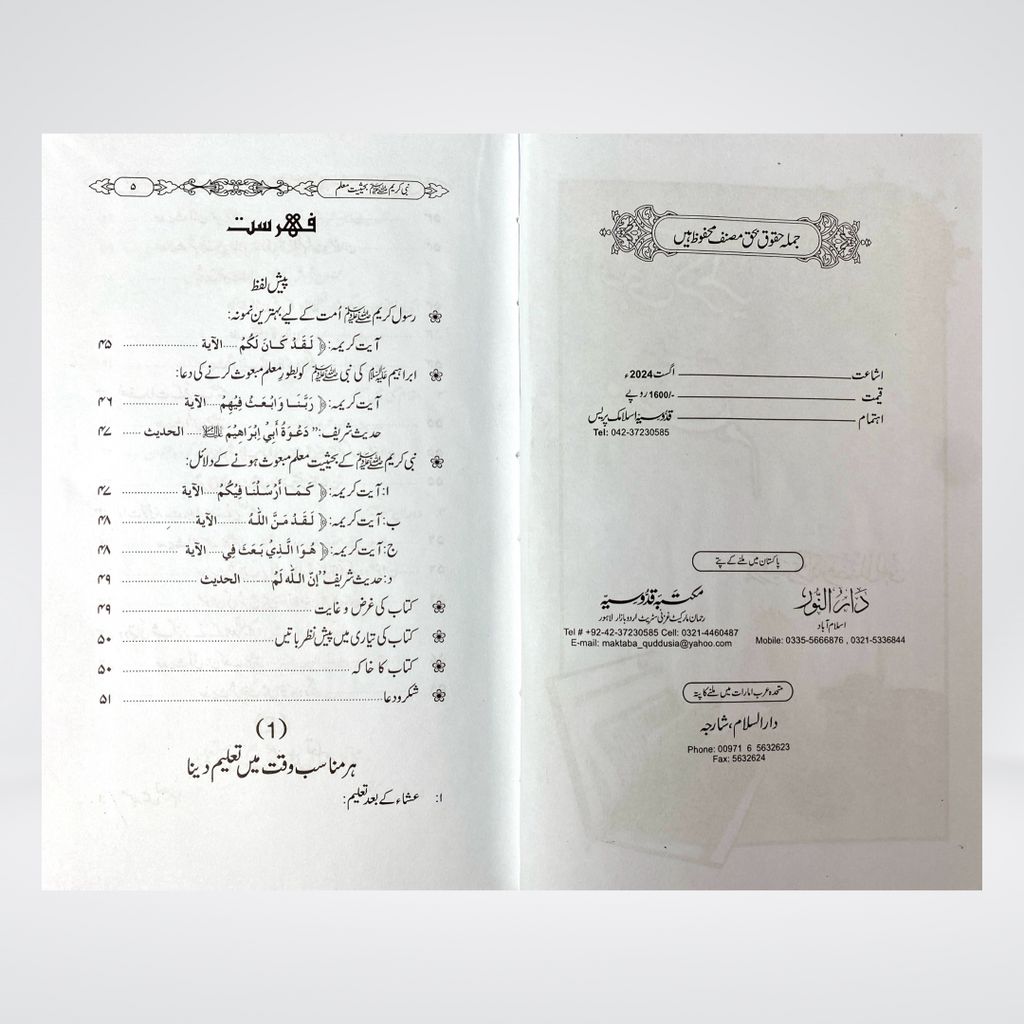 جملہ حقوق بحق مصنف محفوظ ہیں
اشاعت ــــــــ اگست 2024ء
قیمت ــــــــ -/1600 روپے
اہتمام ــــــــ قدوسیہ اسلامک پریس
Tel: 042-37230585
پاکستان میں ملنے کے پتے
دَارُ النُّور
اسلام آباد
Mobile: 0335-5666876 , 0321-5336844
مکتبہ قدوسیہ
رحمان مارکیٹ غزنی سٹریٹ اردو بازار لاہور
Tel # +92-42-37230585 Cell: 0321-4460487
E-mail: maktaba_quddusia@yahoo.com
متحدہ عرب امارات میں ملنے کا پتہ
دار السلام، شارجہ
Phone: 00971 6 5632623
Fax: 5632624
نبی کریم ﷺ بحیثیت معلم ۵
فہرست
پیش لفظ
رسول کریم ﷺ اُمت کے لیے بہترین نمونہ:
آیت کریمہ: ﴿ لَقَدْ كَانَ لَكُمْ ..... الآية ........ ۴۵
ابراہیم علیہ السلام کی نبی ﷺ کو بطور معلم مبعوث کرنے کی دعا:
آیت کریمہ: ﴿ رَبَّنَا وَابْعَثْ فِيهِمْ ..... الآية ........ ۴۶
حدیث شریف: ”دَعْوَةُ أَبِيْ إِبْرَاهِيْمَ علیہ السلام ..... الحديث ...... ۴۷
نبی کریم ﷺ کے بحیثیت معلم مبعوث ہونے کے دلائل:
ا: آیت کریمہ: ﴿ كَمَا أَرْسَلْنَا فِيْكُمْ ..... الآية ........ ۴۷
ب: آیت کریمہ: ﴿ لَقَدْ مَنَّ اللّٰهُ ......... الآية ........ ۴۸
ج: آیت کریمہ: ﴿ هُوَ الَّذِيْ بَعَثَ فِي ..... الآية ........ ۴۸
د: حدیث شریف: ”إِنَّ اللّٰه لَمْ ........ الحديث ........ ۴۹
کتاب کی غرض و غایت ........ ۴۹
کتاب کی تیاری میں پیش نظر باتیں ........ ۵۰
کتاب کا خاکہ ........ ۵۰
شکر و دعا ........ ۵۱
(1)
ہر مناسب وقت میں تعلیم دینا
ا: عشاء کے بعد تعلیم: